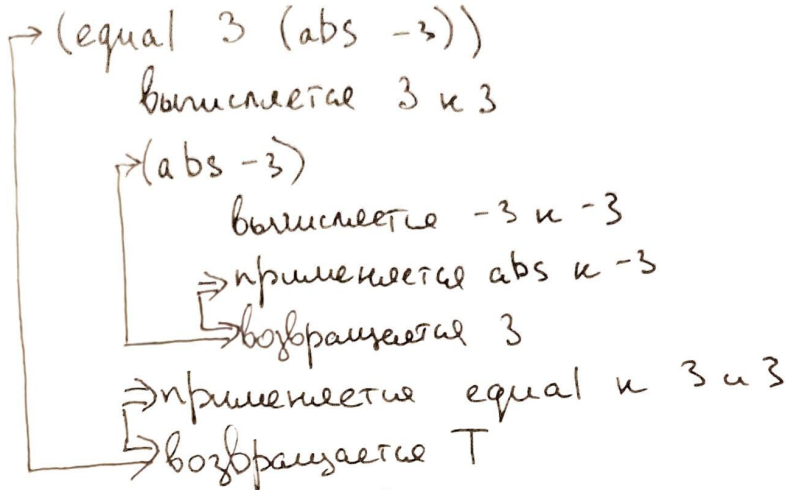 (equal 3 (abs -3))
вычисляется 3 к 3
(abs -3)
вычисляется -3 к -3
применяется abs к -3
возвращается 3
применяется equal к 3 и 3
возвращается T